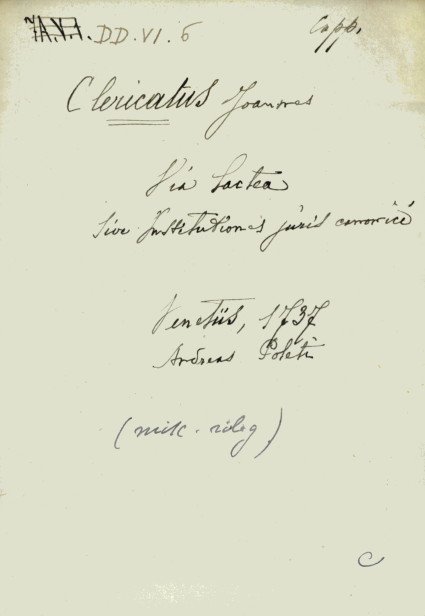 DD.VI.6
Copp.
Clericatus Joannes
Via Lactea
sive Institutiones juris canonici
Venetiis, 1737
Andreas Poleti
(mik. rileg)
C